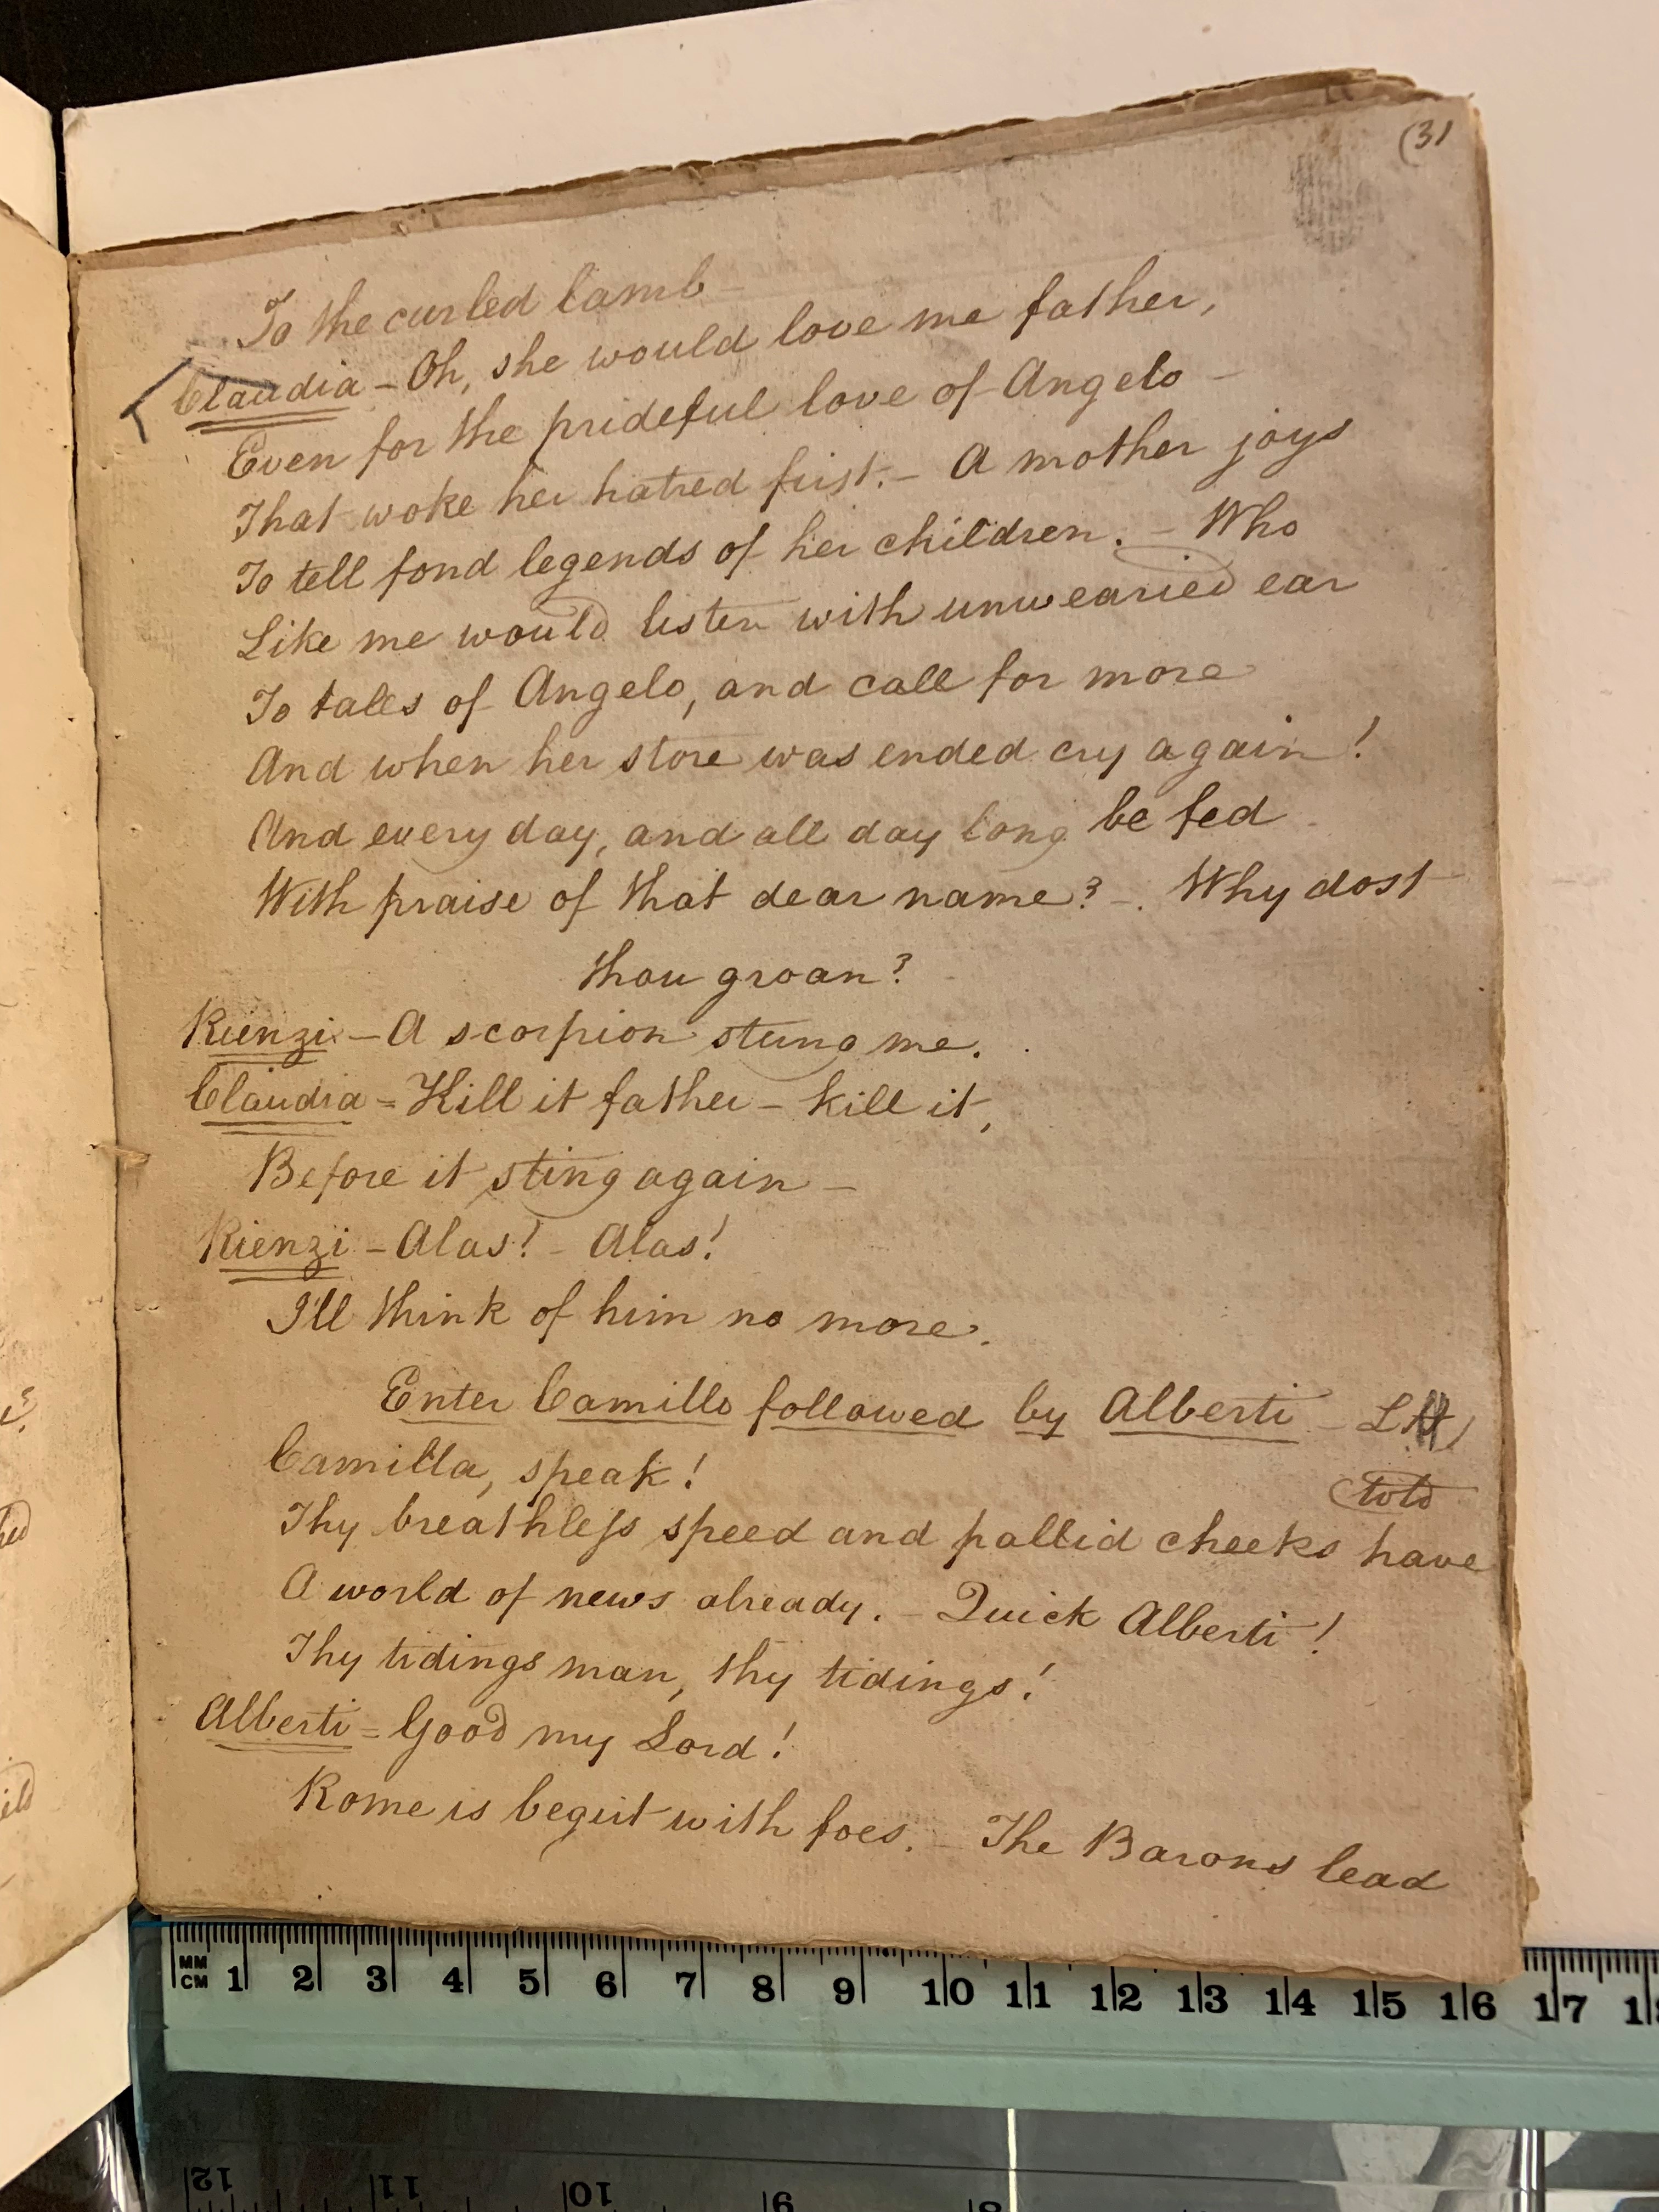 (31
To the curled lamb –
Claudia – Oh, she would love me father,
Even for the prideful love of Angelo –
That woke her hatred first. – A mother joys
To tell fond legends of her children. – Who
Like me would listen with unwearied ear
To tales of Angelo, and call for more
And when her store was ended cry again!
And every day, and all day long be fed
With praise of that dear name? – . Why dost
thou groan?
Rienzi – A scorpion stung me.
Claudia = Kill it father – kill it,
Before it sting again –
Rienzi – Alas! – Alas!
I'll think of him no more.
Enter Camillo followed by Alberti –
Camilla, speak!
told
Thy breathless speed and pallid cheeks have
A world of news already. – Quick Alberti!
Thy tidings man, thy tidings!
Alberti = Good my Lord!
Rome is begirt with foes. – The Barons lead
MM
CM 1 2 3 4 5 6 7 8 9 10 11 12 13 14 15 16 17
12 11 10 9 8